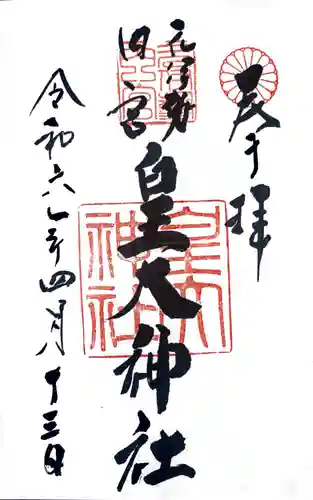 奉拝
元伊勢
内宮
皇大神社
皇大神社
令和六年四月十三日